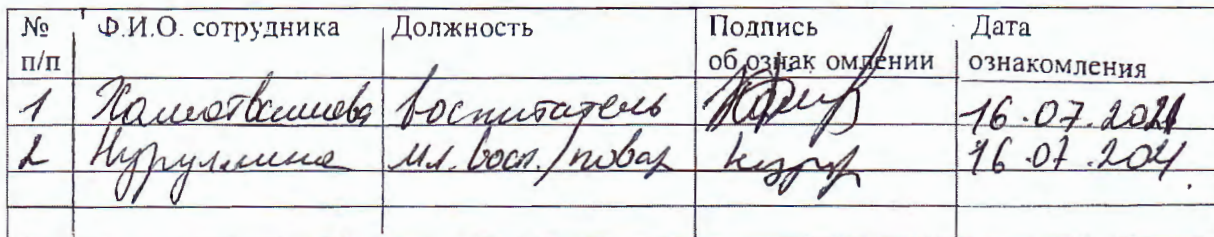 № п/п Ф.И.О. сотрудника Должность Подпись об ознак омлении Дата ознакомления
1 Хаматвалиева воспитатель 16.07.2021
2 Нуруллина мл. восп./повар 16.07.2021